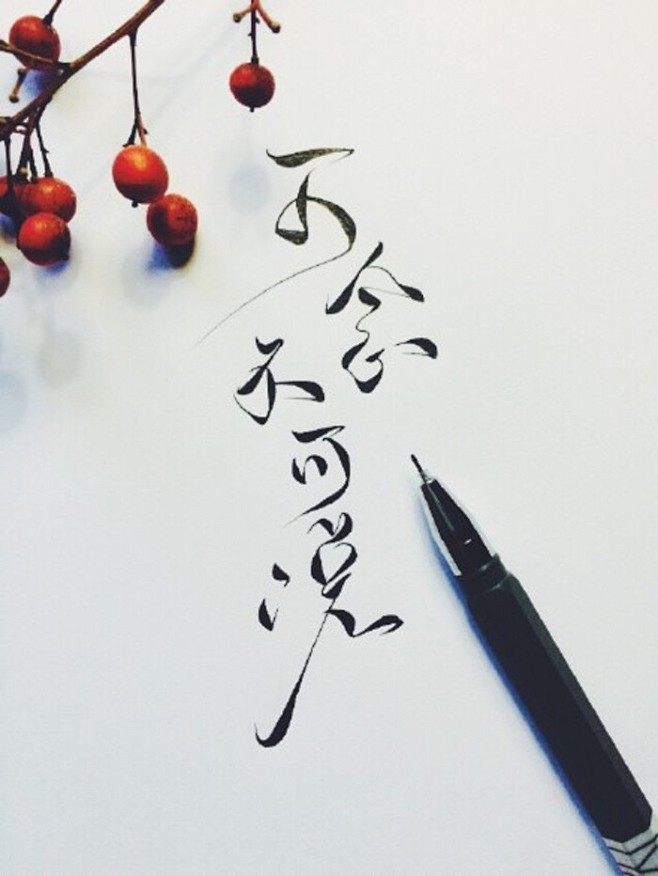 可会不可说